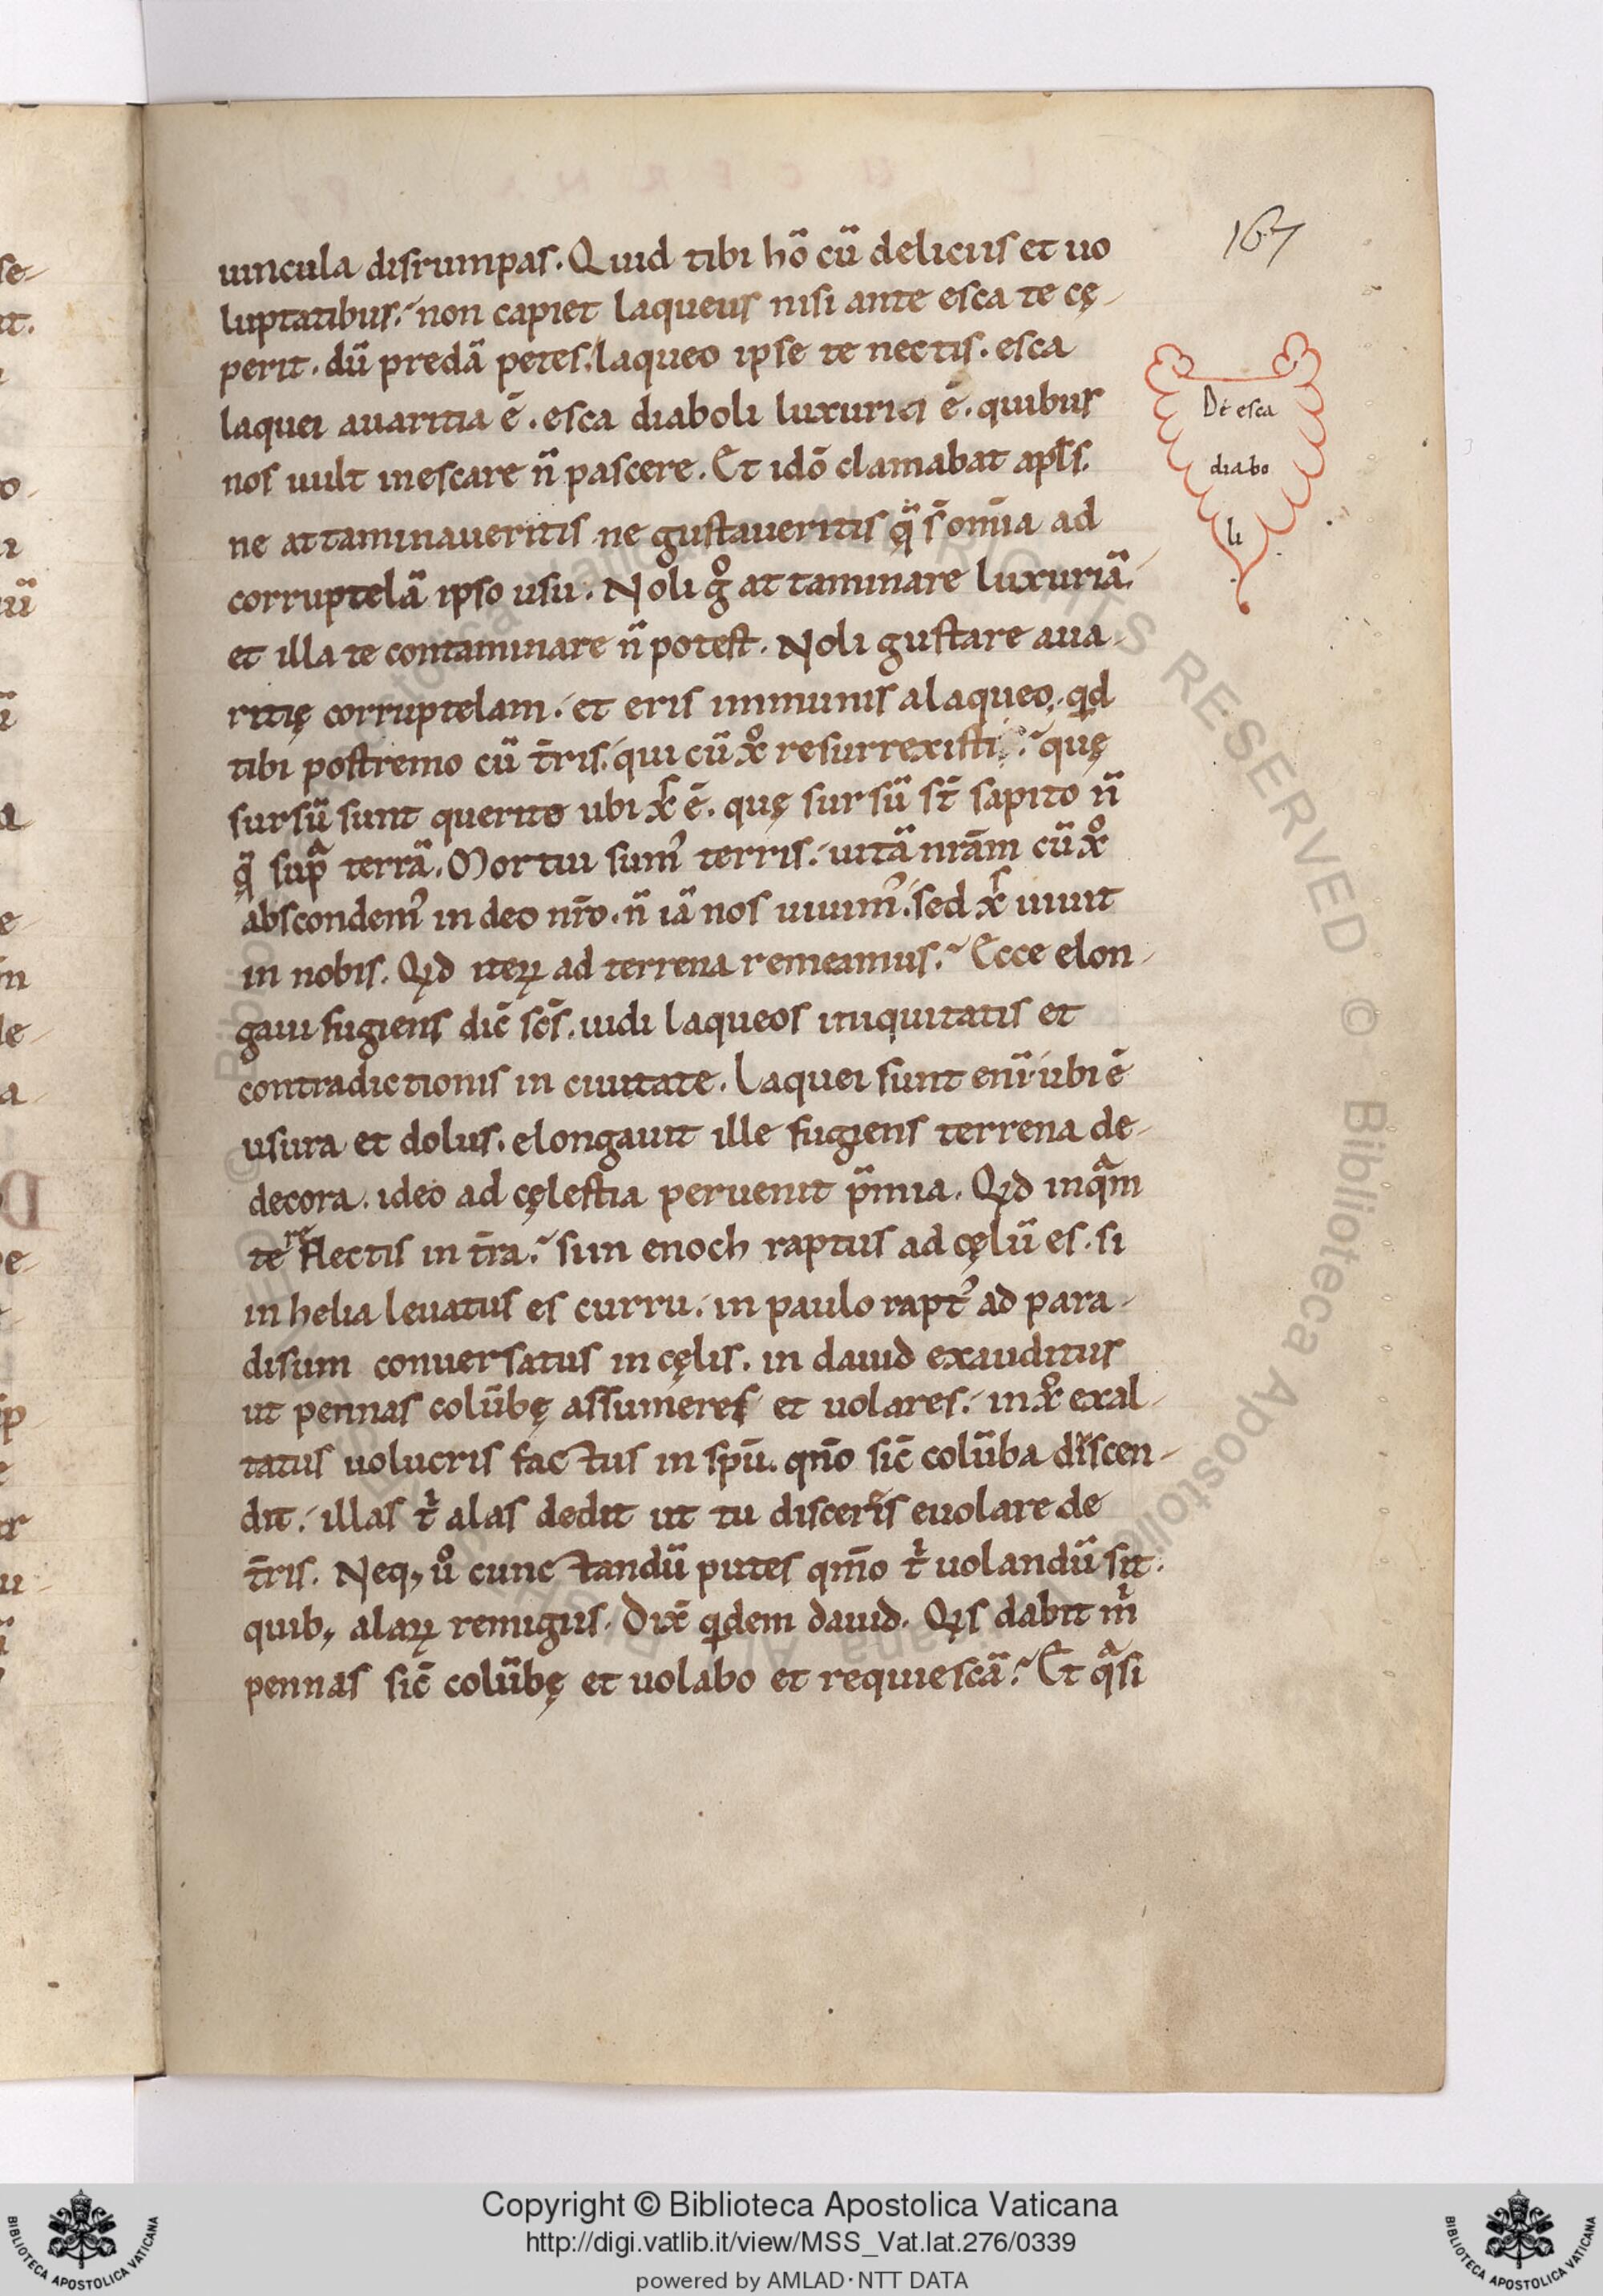 167
uincula disrumpas. Quid tibi hō cū deliciis et uo
luptatibus. non capiet laqueus nisi ante esca te cę-
perit. dū predā petes. laqueo ipse te nectis. esca
laquei auaritia ē. esca diaboli luxuria ē. quibus
nos uult inescare n̄ pascere. Et idō clamabat apłs.
ne attaminaueritis ne gustaueritis q̄ s̄ om̄ia ad
corruptelā ipso usu. Noli gͦ attaminare luxuriā.
et illa te contaminare n̄ potest. Noli gustare aua-
ritię corruptelam. et eris immunis a laqueo. qd
tibi postremo cū t̄ris. qui cū xͦ resurrexisti? quę
sursū sunt querito ubi xˢ ē. quę sursū st̄ sapito n̄
q̄ sup̄ terrā. Mortui sum᾽ terris. uitā nr̄am cū xͦ
abscondem᾽ in deo nr̄o. n̄ iā nos uiuim᾽. sed xˢ uiuit
in nobis. Qd iteꝝ ad terrena remeamus? Ecce elon-
gaui fugiens dic̄ sc̄s. uidi laqueos iniquitatis et
contradictionis in ciuitate. Laquei sunt eni ubi ē
usura et dolus. elongauit ille fugiens terrena de-
decora. ideo ad cęlestia peruenit p̄mia. Qd inqͣm
te reflectis in t̄ra? si in enoch raptus ad cęlū es. si
in helia leuatus es curru. in paulo rapt᾽ ad para-
disum conuersatus in cęlis. in dauid exauditus
ut pennas colūbę assumeres et uolares. in xͦ exal-
tatus uolucris factus in spū. qn̄o sic̄ colūba discen-
dit. illas tⁱ alas dedit ut tu disceris euolare de
t̄ris. Neq, uͦ cunctandū putes qm̄o tⁱ uolandū sit.
quib, alaꝝ remigiis. Dix̄ qdem dauid. Qs dabit mⁱ
pennas sic̄ colūbę et uolabo et requiescā? Et qͣsi
De esca
diabo
li
Copyright © Biblioteca Apostolica Vaticana
http://digi.vatlib.it/view/MSS_Vat.lat.276/0339
powered by AMLAD·NTT DATA
BIBLIOTECA APOSTOLICA VATICANA
BIBLIOTECA APOSTOLICA VATICANA